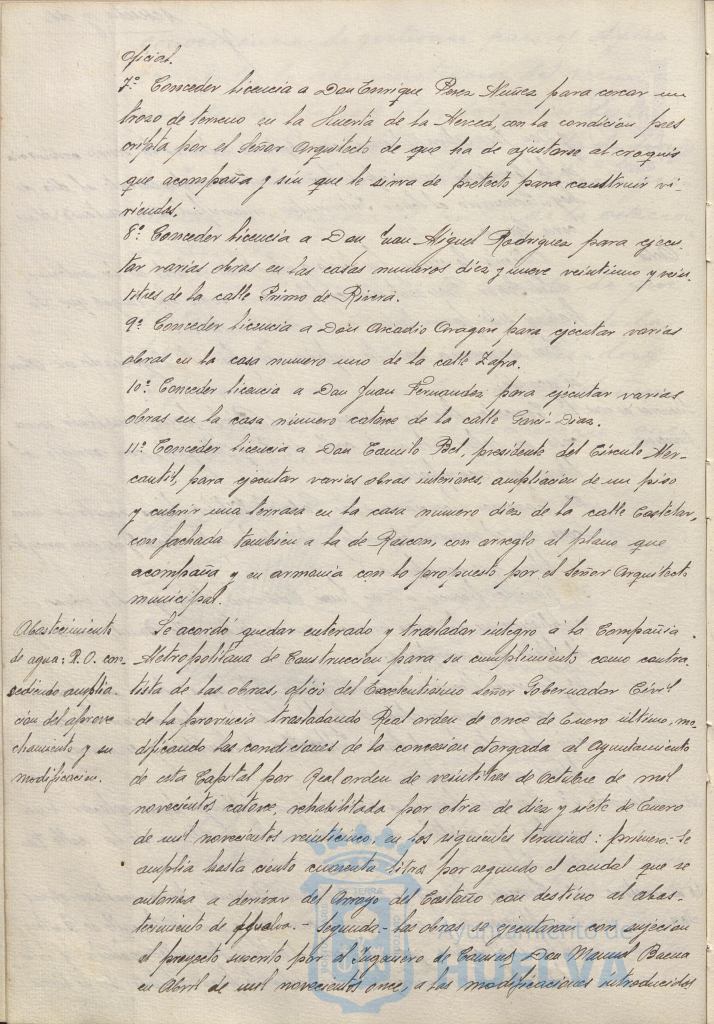 oficial.
7º Conceder licencia a Don Enrique Perez Nuñez para cercar un
trozo de terreno en la Huerta de la Merced, con la condicion pres
cripta por el Señor Arquitecto de que ha de ajustarse al croquis
que acompaña y sin que le sirva de pretexto para construir vi-
viendas.
8º Conceder licencia a Don Juan Miguel Rodriguez para ejecu-
tar varias obras en las casas numeros diez y nueve veintiuno y vein-
titres de la calle Primo de Rivera.
9º Conceder licencia a Don Arcadio Aragon, para ejecutar varias
obras en la casa numero uno de la calle Zafra.
10º Conceder licencia a Don Juan Fernandez para ejecutar varias
obras en la casa número catorce de la calle Garci-Diaz.
11º Conceder licencia a Don Camilo Bel, presidente del Círculo Mer-
cantil, para ejecutar varias obras interiores, ampliacion de un piso
y cubrir una terraza en la casa numero diez de la calle Castelar,
con fachada tambien a la de Rascon, con arreglo al plano que
acompaña y en armonia con lo propuesto por el Señor Arquitecto
municipal.
Abastecimiento
de agua: R.O. con-
cediendo amplia-
cion del aprove
chamiento y su
modificacion.
Se acordó quedar enterado y trasladar integro á la Compañia
Metropolitana de Construccion para su cumplimiento como contra-
tista de las obras, oficio del Excelentisimo Señor Gobernador Civil
de la provincia trasladando Real orden de once de Enero ultimo, mo-
dificando las condiciones de la concesion otorgada al Ayuntamiento
de esta Capital por Real orden de veintitres de Octubre de mil
novecientos catorce, rehabilitada por otra de diez y siete de Enero
de mil novecientos veinticinco, en los siguientes terminos: primero.- Se
amplia hasta ciento cincuenta litros por segundo el caudal que se
autoriza a derivar del Arroyo del Castaño con destino al abas-
tecimiento de Huelva.- Segunda.- Las obras se ejecutarán con sujecion
al proyecto suscrito por el Ingeniero de Caminos Don Manuel Baena
en Abril de mil novecientos once, a las modificaciones introducidas
Ayuntamiento de
HUELVA